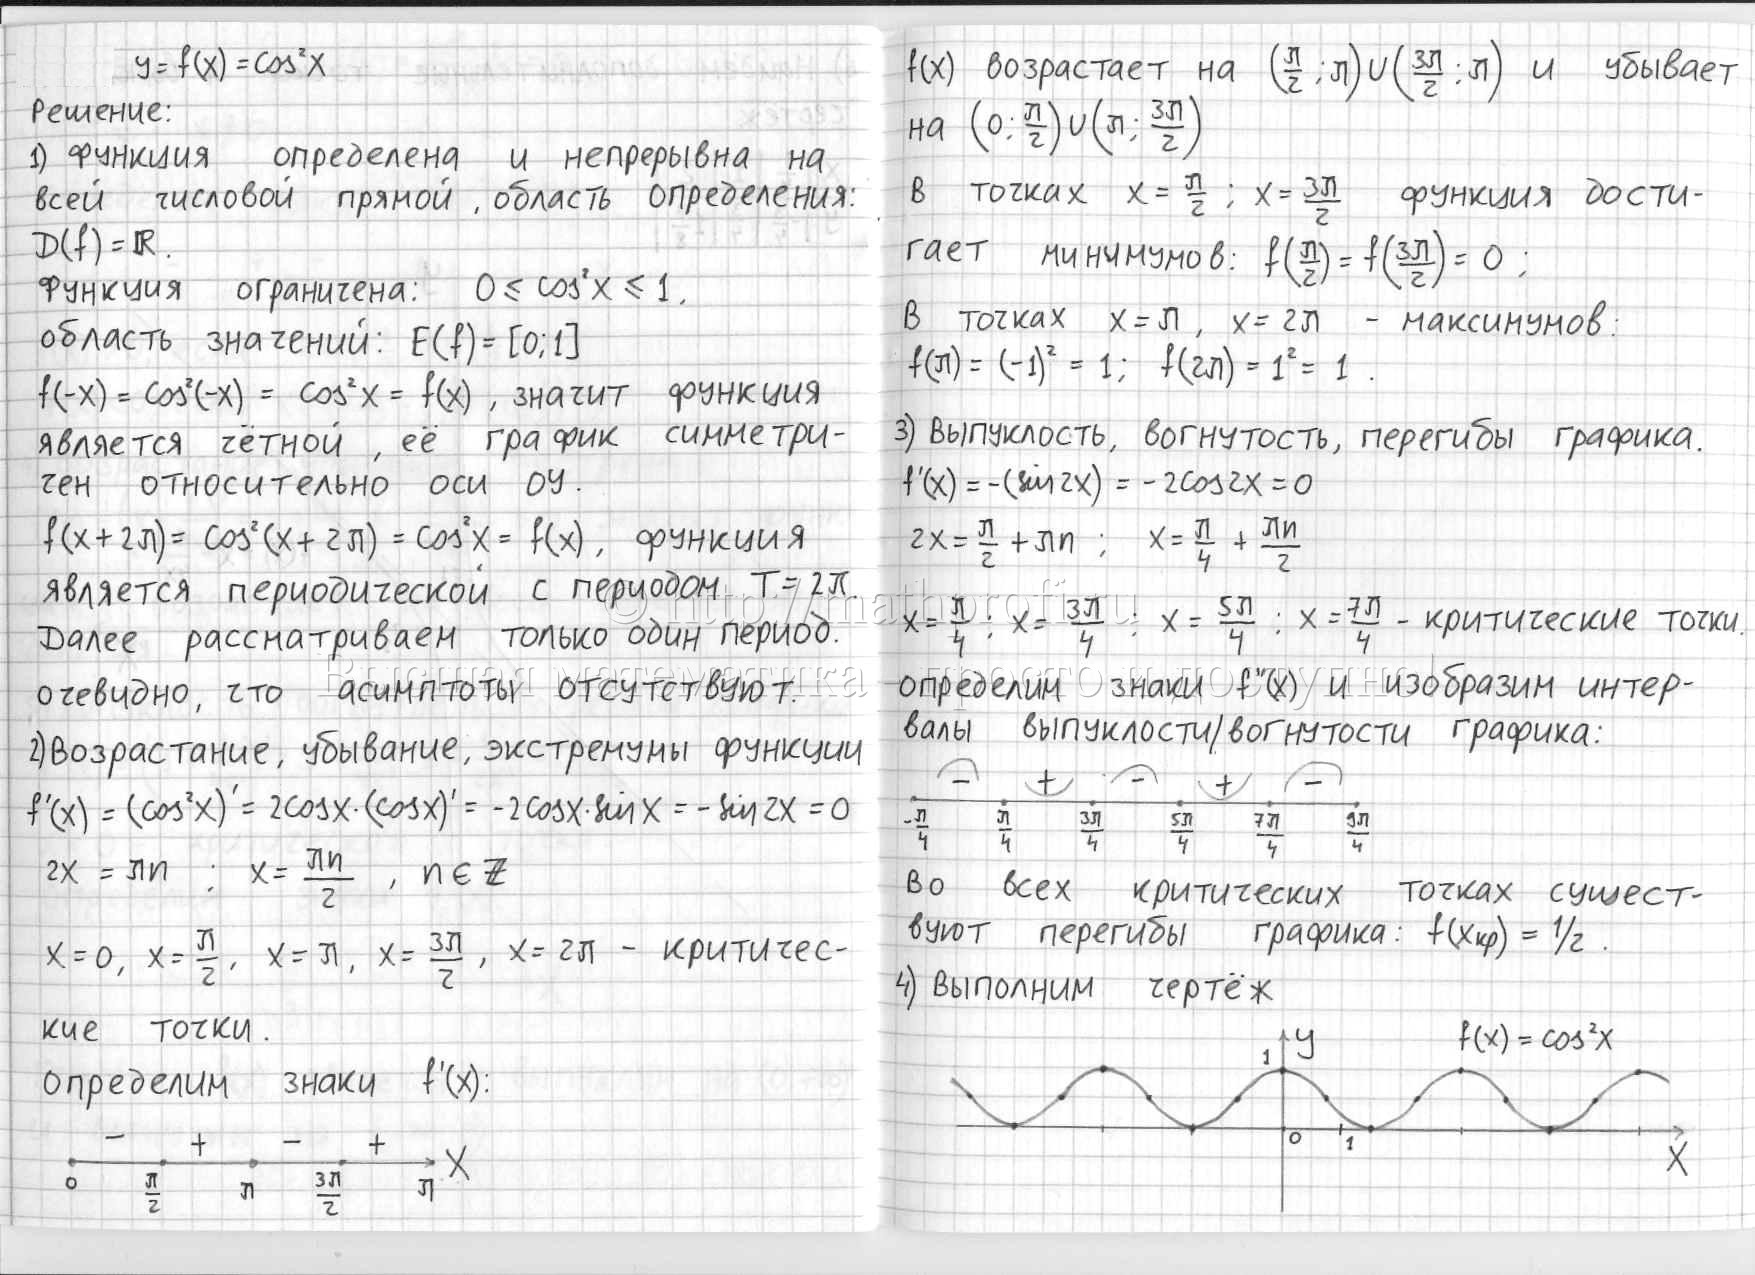 y = f(x) = cos²x
Решение:
1) Функция определена и непрерывна на
всей числовой прямой, область определения:
D(f) = ℝ.
Функция ограничена: 0 ≤ cos²x ≤ 1,
область значений: E(f) = [0;1]
f(-x) = cos²(-x) = cos²x = f(x), значит функция
является чётной, её график симметри-
чен относительно оси OY.
f(x+2π) = cos²(x+2π) = cos²x = f(x), функция
является периодической с периодом T = 2π.
Далее рассматриваем только один период.
Очевидно, что асимптоты отсутствуют.
2) Возрастание, убывание, экстремумы функции
f'(x) = (cos²x)' = 2cosx·(cosx)' = -2cosx·sinx = -sin2x = 0
2x = πn ; x = πn/2 , n ∈ ℤ
x=0, x=π/2, x=π, x=3π/2, x=2π – критичес-
кие точки.
Определим знаки f'(x):
− + − +
0 π/2 π 3π/2 π X
f(x) возрастает на (π/2;π)∪(3π/2;π) и убывает
на (0;π/2)∪(π;3π/2)
В точках x=π/2 ; x=3π/2 функция дости-
гает минимумов: f(π/2) = f(3π/2) = 0 ;
В точках x=π, x=2π – максимумов:
f(π) = (-1)² = 1; f(2π) = 1² = 1 .
3) Выпуклость, вогнутость, перегибы графика.
f'(x) = -(sin2x) = -2cos2x = 0
2x = π/2 + πn ; x = π/4 + πn/2
x=π/4 ; x=3π/4 ; x=5π/4 ; x=7π/4 – критические точки.
Определим знаки f''(x) и изобразим интер-
валы выпуклости/вогнутости графика:
− + − + −
-π/4 π/4 3π/4 5π/4 7π/4 9π/4
Во всех критических точках сущест-
вуют перегибы графика: f(xкр) = 1/2 .
4) Выполним чертёж
1 y f(x) = cos²x
0 1 X
© http://mathprofi.ru
Высшая математика – просто и доступно!